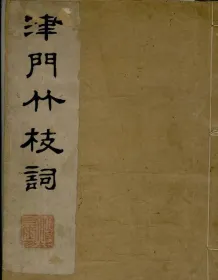 津門竹枝詞